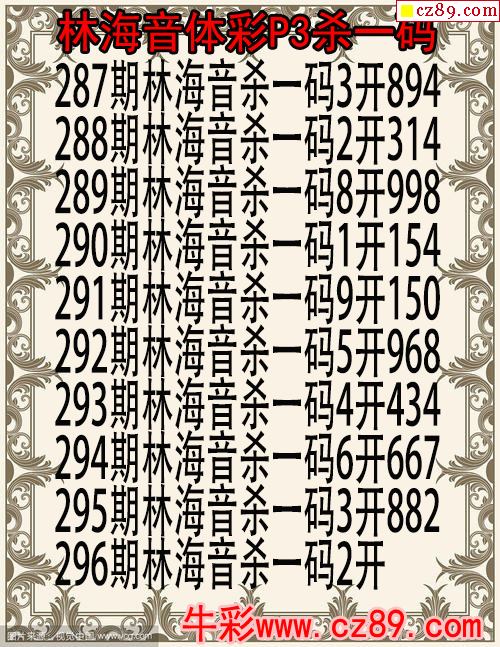 cz89.com
林海音体彩P3杀一码
287期林海音杀一码3开894
288期林海音杀一码2开314
289期林海音杀一码8开998
290期林海音杀一码1开154
291期林海音杀一码9开150
292期林海音杀一码5开968
293期林海音杀一码4开434
294期林海音杀一码6开667
295期林海音杀一码3开882
296期林海音杀一码2开
牛彩www.cz89.com
图片来源：视觉中国 www.vcg.com